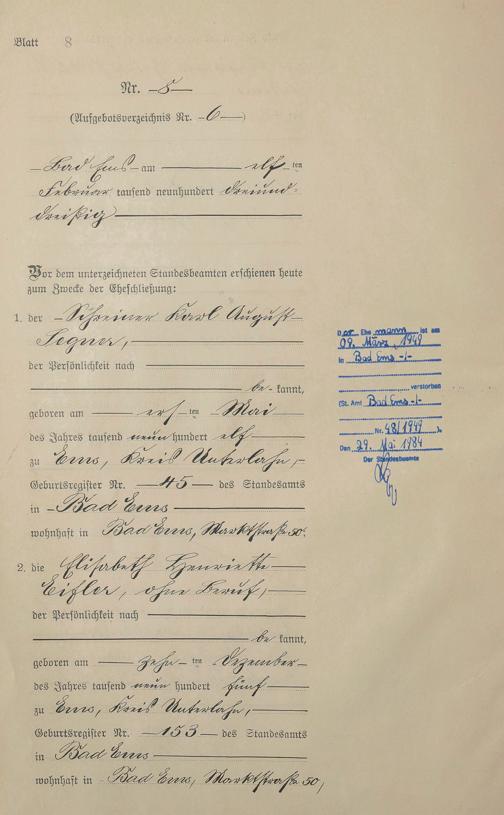 Blatt 8
Nr. —8—
(Aufgebotsverzeichnis Nr. —6—)
Bad Ems am elften
Februar tausend neunhundert dreiund-
dreißig
Vor dem unterzeichneten Standesbeamten erschienen heute
zum Zwecke der Eheschließung:
1. der Schreiner Karl August
der Persönlichkeit nach
be kannt,
geboren am ten Mai
des Jahres tausend neun hundert elf
zu Ems, Kreis Unterlahn,
Geburtsregister Nr. —45— des Standesamts
in Bad Ems
wohnhaft in Bad Ems, Marktstraße 50.
2. die Elisabeth Henriette
Eifler, ohne Beruf,
der Persönlichkeit nach
be kannt,
geboren am zehn ten Dezember
des Jahres tausend neun hundert fünf
zu Ems, Kreis Unterlahn,
Geburtsregister Nr. —153— des Standesamts
in Bad Ems
wohnhaft in Bad Ems, Marktstraße 50,
Der Ehe mann ist am
09. März 1949
in Bad Ems -/-
verstorben
(St. Amt Bad Ems -/-
Nr. 48/1949 ).
Den 29. Mai 1984
Der Standesbeamte